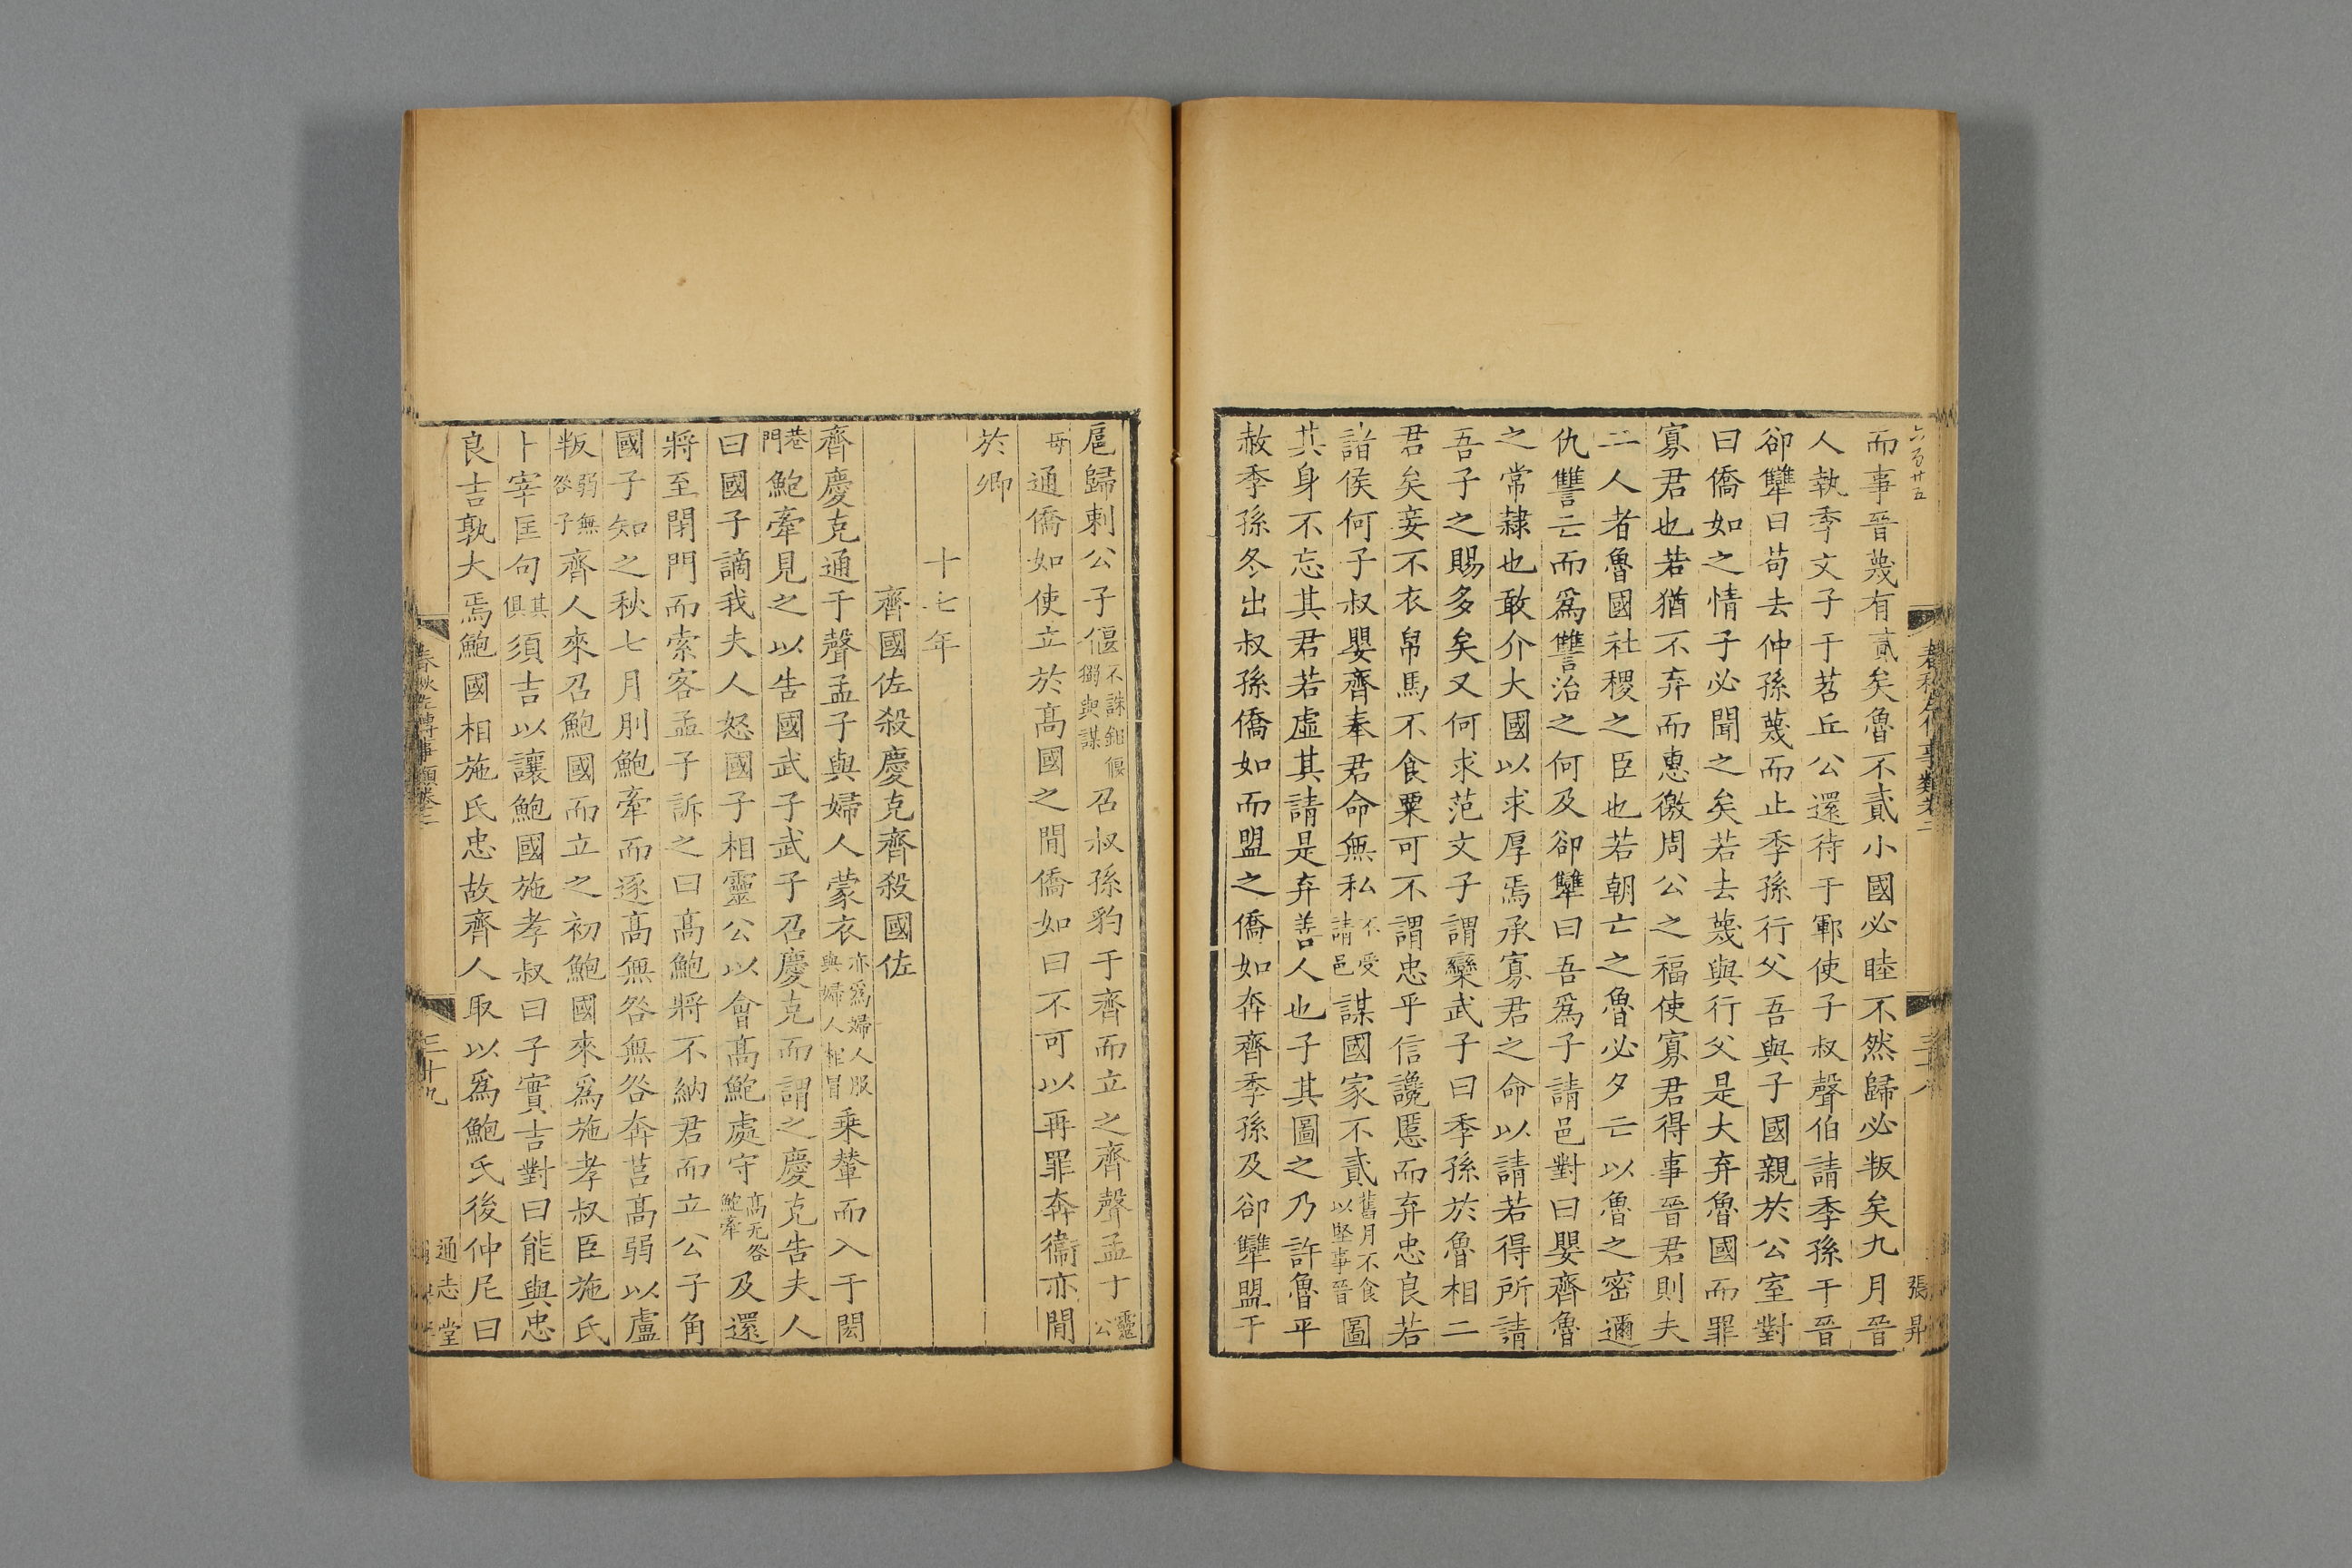 六百廿五
而事晉蔑有貳矣魯不貳小國必睦不然歸必叛矣九月晉
人執季文子于苕丘公還待于鄆使子叔聲伯請季孫于晉
郤犫曰苟去仲孫蔑而止季孫行父吾與子國親於公室對
曰僑如之情子必聞之矣若去蔑與行父是大弃魯國而罪
寡君也若猶不弃而惠徼周公之福使寡君得事晉君則夫
二人者魯國社稷之臣也若朝亡之魯必夕亡以魯之密邇
仇讐亡而爲讐治之何及郤犫曰吾爲子請邑對曰嬰齊魯
之常隸也敢介大國以求厚焉承寡君之命以請若得所請
吾子之賜多矣又何求范文子謂欒武子曰季孫於魯相二
君矣妾不衣帛馬不食粟可不謂忠乎信讒慝而弃忠良若
諸侯何子叔嬰齊奉君命無私不受請邑謀國家不貳舊月不食以堅事晉圖
其身不忘其君若虛其請是弃善人也子其圖之乃許魯平
赦季孫冬出叔孫僑如而盟之僑如奔齊季孫及郤犫盟于
春秋左傳事類卷二
三十八
張昇
扈歸刺公子偃不誅鉏偃獨與謀召叔孫豹于齊而立之齊聲孟子靈公
母通僑如使立於髙國之閒僑如曰不可以再罪奔衞亦閒
於卿
十七年
齊國佐殺慶克齊殺國佐
齊慶克通于聲孟子與婦人蒙衣亦爲婦人服與婦人相冒乗輦而入于閎
巷門鮑牽見之以告國武子武子召慶克而謂之慶克告夫人
曰國子謫我夫人怒國子相靈公以會髙鮑處守髙无咎鮑牽及還
將至閉門而索客孟子訴之曰髙鮑將不納君而立公子角
國子知之秋七月刖鮑牽而逐髙無咎無咎奔莒髙弱以盧
叛弱無咎子齊人來召鮑國而立之初鮑國來爲施孝叔臣施氏
卜宰匡句其俱須吉以讓鮑國施孝叔曰子實吉對曰能與忠
良吉孰大焉鮑國相施氏忠故齊人取以爲鮑氏後仲尼曰
春秋左傳事類卷二
三十九
通志堂